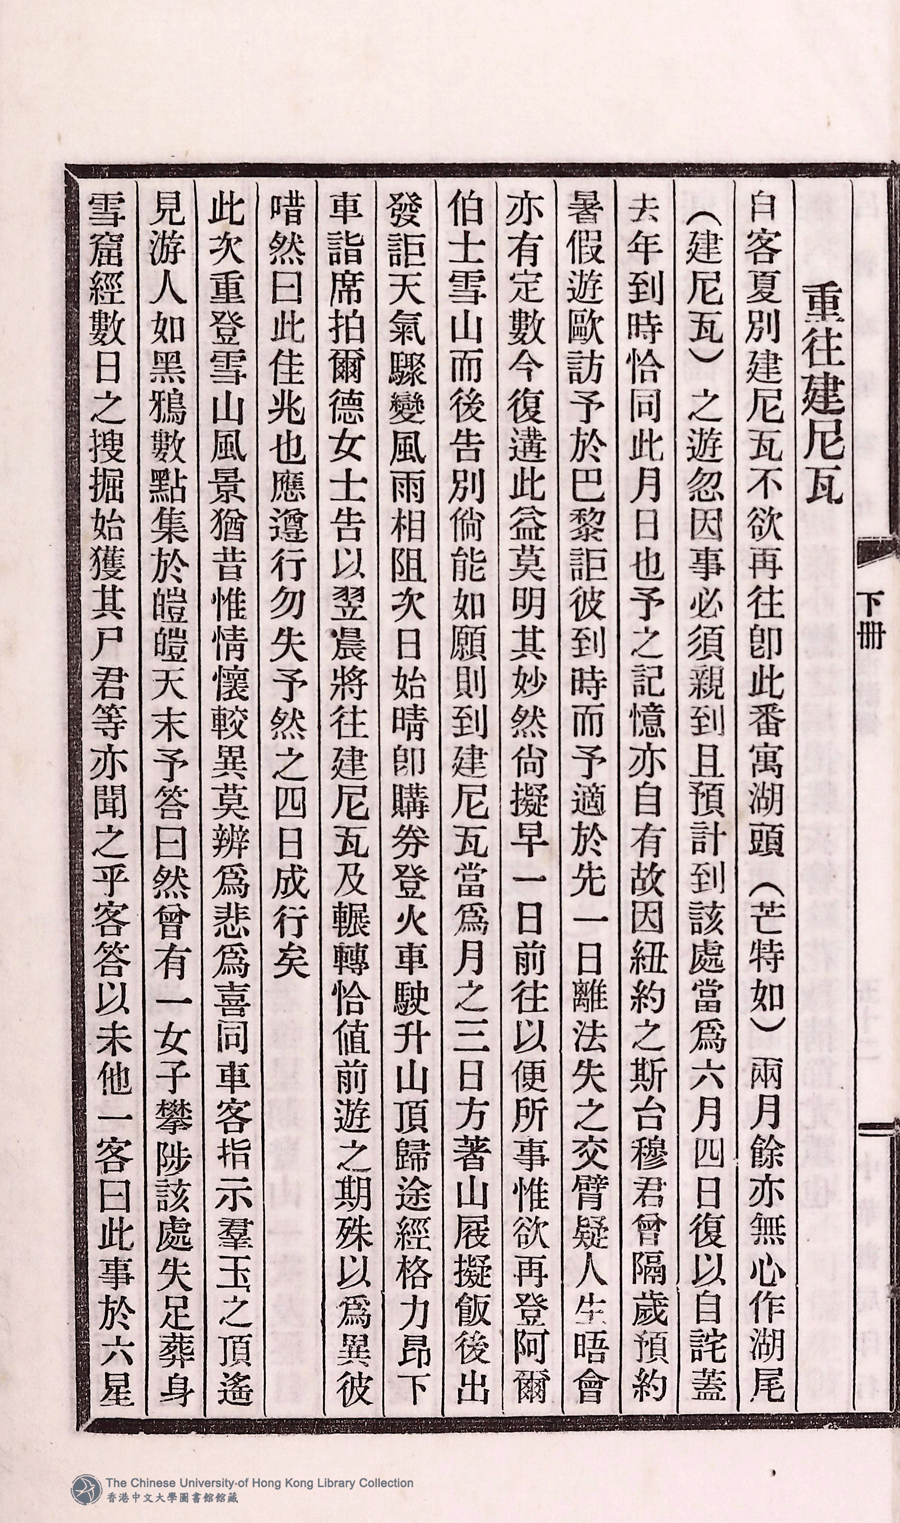 重往建尼瓦
自客夏別建尼瓦不欲再往卽此番寓湖頭（芒特如）兩月餘亦無心作湖尾
（建尼瓦）之遊忽因事必須親到且預計到該處當爲六月四日復以自詫蓋
去年到時恰同此月日也予之記憶亦自有故因紐約之斯台穆君曾隔歲預約
暑假遊歐訪予於巴黎詎彼到時而予適於先一日離法失之交臂疑人生晤會
亦有定數今復遘此益莫明其妙然尙擬早一日前往以便所事惟欲再登阿爾
伯士雪山而後告別倘能如願則到建尼瓦當爲月之三日方著山屐擬飯後出
發詎天氣驟變風雨相阻次日始晴卽購券登火車駛升山頂歸途經格力昂下
車詣席拍爾德女士告以翌晨將往建尼瓦及輾轉恰值前遊之期殊以爲異彼
唶然曰此佳兆也應遵行勿失予然之四日成行矣
此次重登雪山風景猶昔惟情懷較異莫辨爲悲爲喜同車客指示羣玉之頂遙
見游人如黑鴉數點集於皚皚天末予答曰然曾有一女子攀陟該處失足葬身
雪窟經數日之搜掘始獲其尸君等亦聞之乎客答以未他一客曰此事於六星
下冊
The Chinese University of Hong Kong Library Collection
香港中文大學圖書館館藏